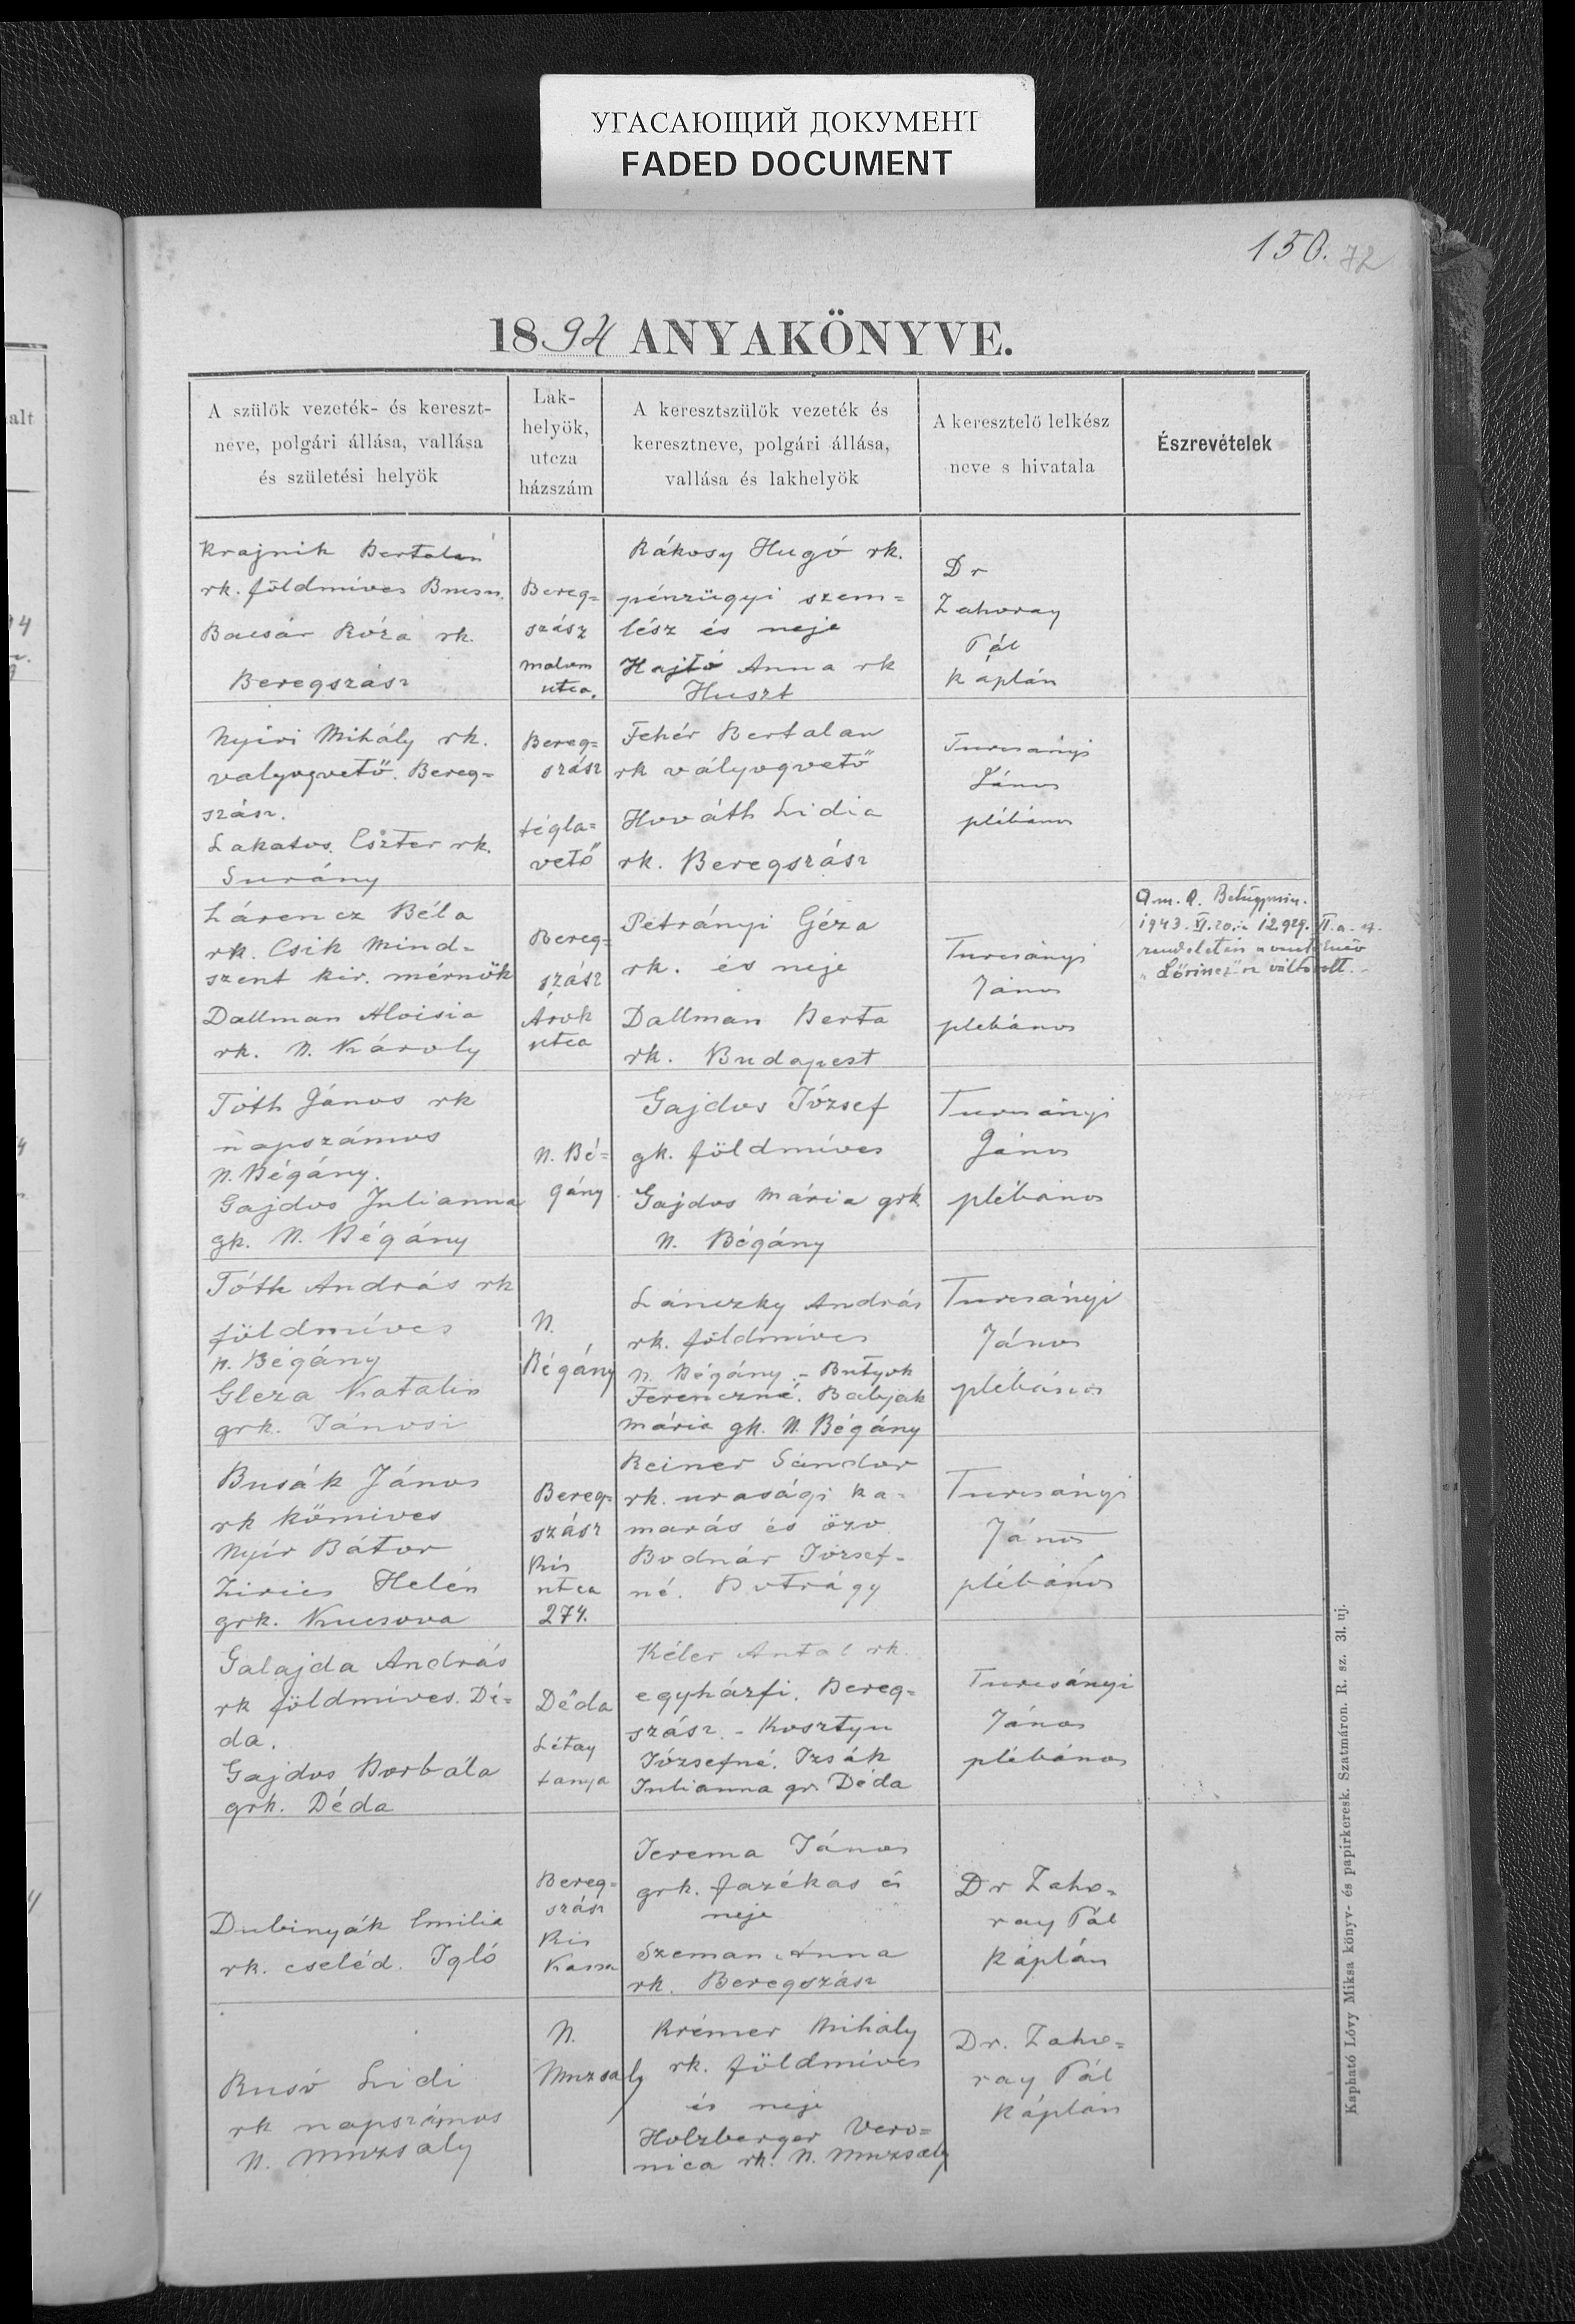 УГАСАЮЩИЙ ДОКУМЕНТ
FADED DOCUMENT
150. 72
1894 ANYAKÖNYVE.
A szülők vezeték- és kereszt-
neve, polgári állása, vallása
és születési helyök
Lak-
helyök,
utcza
házszám
A keresztszülők vezeték és
keresztneve, polgári állása,
vallása és lakhelyök
A keresztelő lelkész
neve s hivatala
Észrevételek
Krajnik Bertalan
rk. földmíves
Bacsár Róza rk.
Beregszász
Bereg=
szász
malom
utca.
Rákosy Hugó rk.
pénzügyi szem=
lész és neje
Hajtó Anna rk
Huszt
Dr
Zahoray
Pál
Káplán
Nyíri Mihály rk.
valyogvető. Bereg=
szász.
Lakatos Eszter rk.
Surány
Bereg=
szász
tégla=
vető
Fehér Bertalan
rk vályogvető
Horváth Lidia
rk. Beregszász
Turcsányi
János
plébános
Lárencz Béla
rk. Csik Mind=
szent kir. mérnök
Dallman Aloisia
rk. N. Károly
Bereg=
szász
Árok
utca
Petrányi Géza
rk. és neje
Dallman Berta
rk. Budapest
Turcsányi
János
plebános
A m. k. Belügymin.
1943. VI. 20. 12.929. II. a. sz.
rendeletén a vezetéknév
"Lőrincz"re változott.
Tóth János rk
napszámos
N. Bégány.
Gajdos Julianna
gk. N. Bégány
N. Bé=
gány.
Gajdos József
gk. földmíves
Gajdos Mária grk
N. Bégány
Turcsányi
János
plébános
Tóth András rk
földmíves
N. Bégány
Gleza Katalin
grk. Jánosi
N.
Bégány
Lánczky András
rk. földmíves
N. Bégány. - Butyok
Ferenczné. Babják
Mária gk. N. Bégány
Turcsányi
János
plébános
Busák János
rk kőmíves
Nyír Bátor
Zirics Helén
grk. Kucsova
Bereg=
szász
Kis
utca
274.
Reiner Sándor
rk. urasági ka=
marás és özv.
Bodnár József=
né. Botrágy
Turcsányi
János
plébános
Galajda András
rk földmíves. Dé=
da.
Gajdos Borbála
grk. Déda
Déda
Létay
tanya
Kéler Antal rk.
egyházfi. Bereg=
szász. - Kosztyu
Józsefné. Izsák
Julianna gr. Déda
Turcsányi
János
plébános
Dubinyák Emilia
rk. cseléd. Igló
Bereg=
szász
Kis
Kassa
Jerema János
grk. fazékas és
neje
Szeman Anna
rk. Beregszász
Dr Zaho=
ray Pál
Káplán
Rusó Lidi
rk napszámos
N. Muzsaly
N.
Muzsaly
Krémer Mihály
rk. földmíves
és neje
Holzberger Vero=
nica rk. N. Muzsaly
Dr. Zaho=
ray Pál
Káplán
Kapható Lövy Miksa könyv- és papirkeresk. Szatmáron. R. sz. 31. uj.